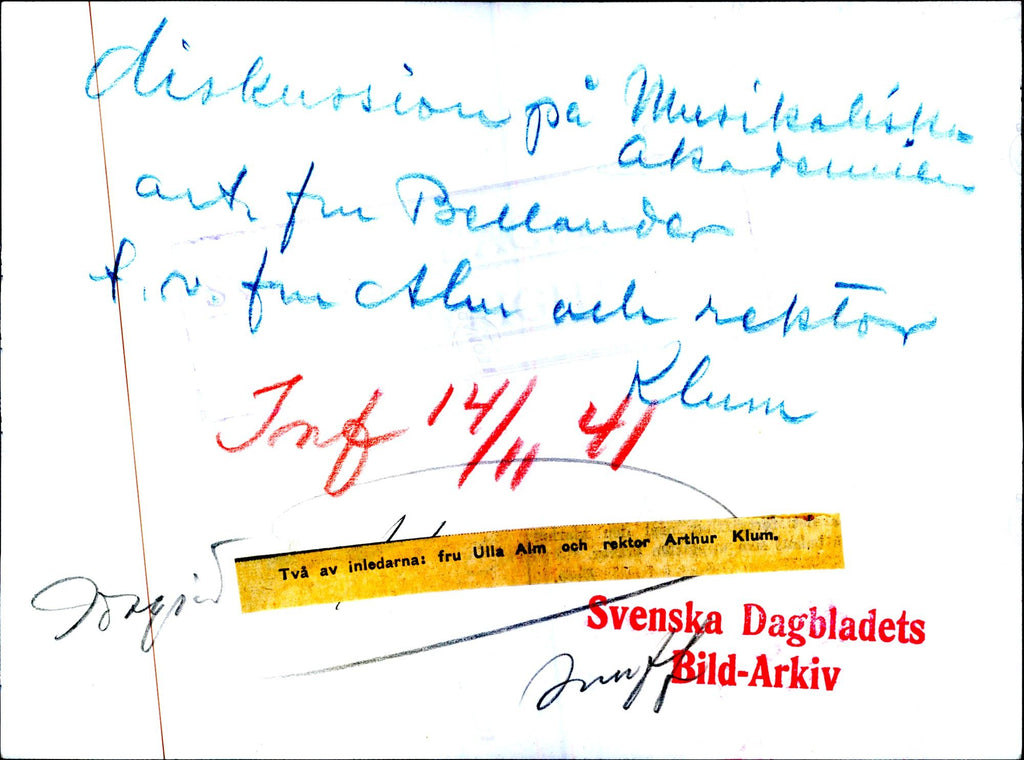 diskussion på Musikaliska
akademien
ant. fru Bellander
t.v. fru Alm och rektor
Klum
Inf 14/11 41
Två av inledarna: fru Ulla Alm och rektor Arthur Klum.
Svenska Dagbladets
Bild-Arkiv